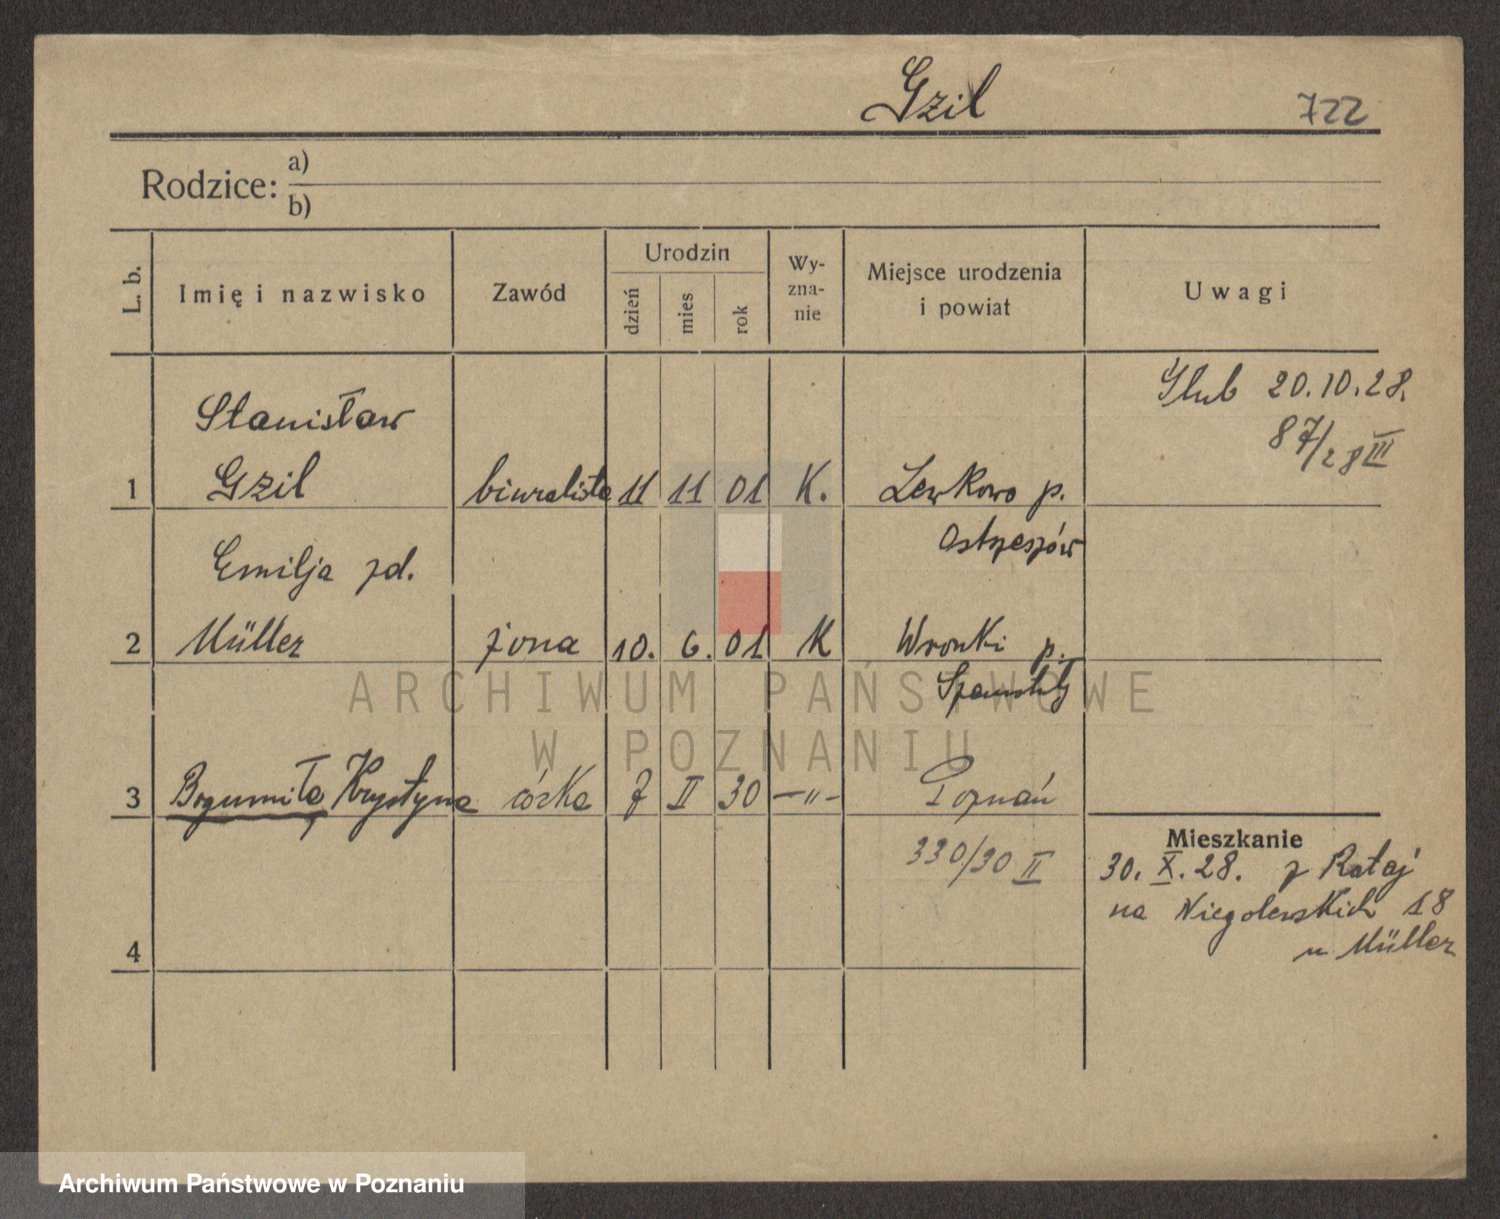 Gzil 722
Rodzice: a)
b)
L. b. Imię i nazwisko Zawód Urodzin dzień mies rok Wy-zna-nie Miejsce urodzenia i powiat Uwagi
Ślub 20.10.28.
87/28 III
Stanisław
1 Gzil biuralista 11 11 01 K. Lewkowo p.
Ostrzeszów
Emilja zd.
2 Müller żona 10. 6. 01 K Wronki p.
Szamotuły
3 Bogumiła Krystyna córka 7 II 30 —"— Poznań
330/30 II
Mieszkanie
30. X. 28. z Rataj
na Niegolewskich 18
u Müller
4
ARCHIWUM PAŃSTWOWE
W POZNANIU
Archiwum Państwowe w Poznaniu